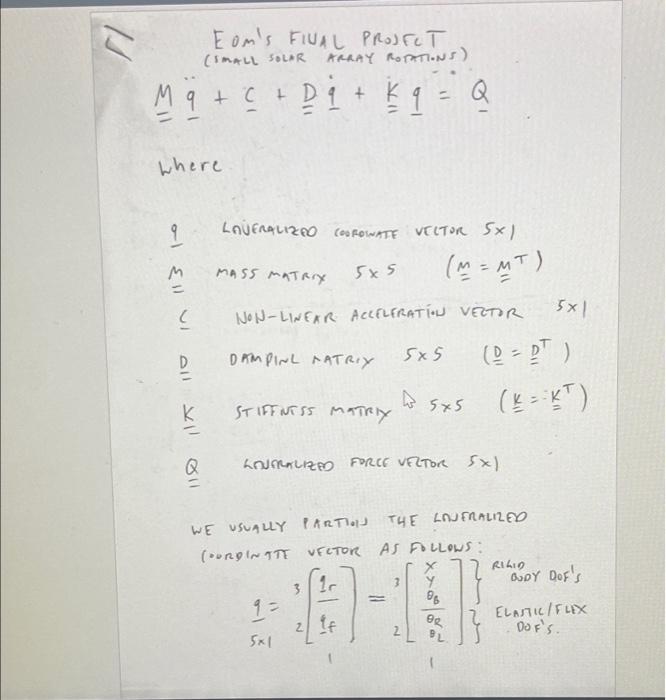 EOM'S FINAL PROJECT
(SMALL SOLAR ARRAY ROTATIONS)
M q̈ + C + D q̇ + K q = Q
where
q GENERALIZED COORDINATE VECTOR 5x1
M MASS MATRIX 5x5 (M = M^T)
C NON-LINEAR ACCELERATION VECTOR 5x1
D DAMPING MATRIX 5x5 (D = D^T)
K STIFFNESS MATRIX 5x5 (K = K^T)
Q GENERALIZED FORCE VECTOR 5x1
WE USUALLY PARTION THE GENERALIZED
COORDINATE VECTOR AS FOLLOWS:
q = 3 [q_r = 3 [X Y θ_B } RIGID BODY DOF'S
5x1 2 q_f] 2 θ_R θ_L] } ELASTIC/FLEX DOF'S.
1 1